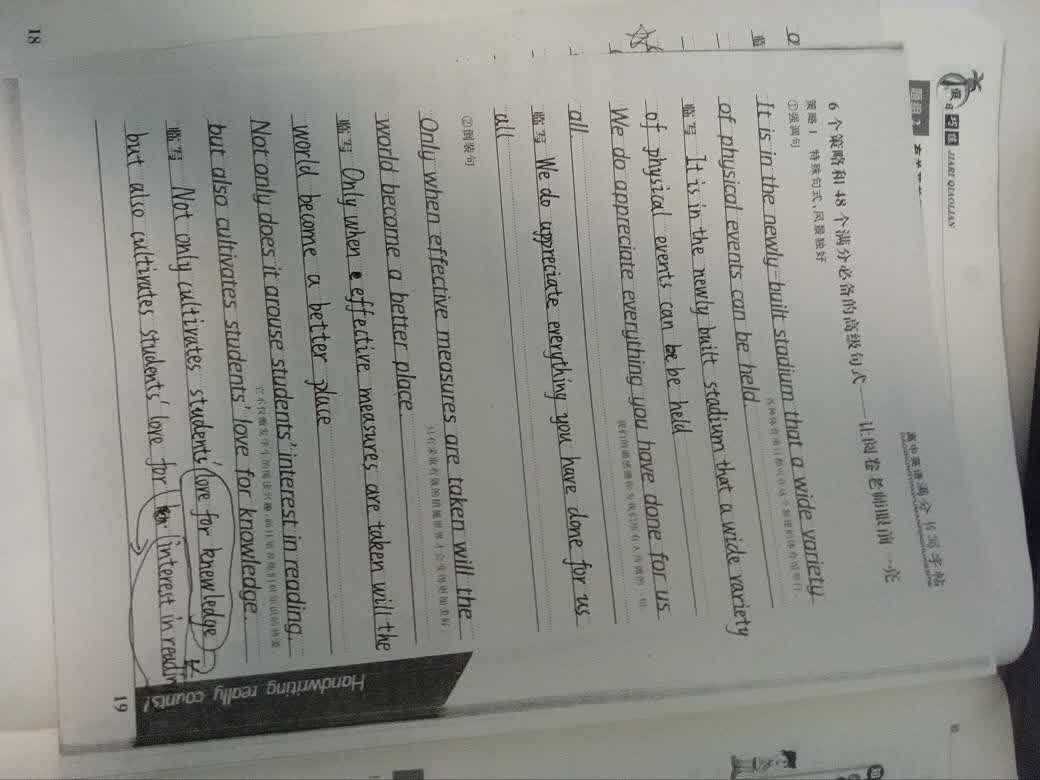 假日巧练 JIARI QIAOLIAN
高中英语满分书写字帖
题组2
6个策略和48个满分必备的高级句式——让阅卷老师眼前一亮
策略1 特殊句式,风景独好
①强调句
It is in the newly-built stadium that a wide variety
of physical events can be held.
临写 It is in the newly built stadium that a wide variety
of physical events can be be held
We do appreciate everything you have done for us
all.
临写 We do appreciate everything you have done for us
all
②倒装句
Only when effective measures are taken will the
world become a better place.
只有采取有效的措施世界才会变得更加美好。
临写 Only when effective measures are taken will the
world become a better place
Not only does it arouse students' interest in reading,
but also cultivates students' love for knowledge.
它不仅激发学生的阅读兴趣,而且培养他们对知识的热爱。
临写 Not only cultivates students' love for knewledge
but also cultivates students' love for interest in readin
Handwriting really counts!
18
19